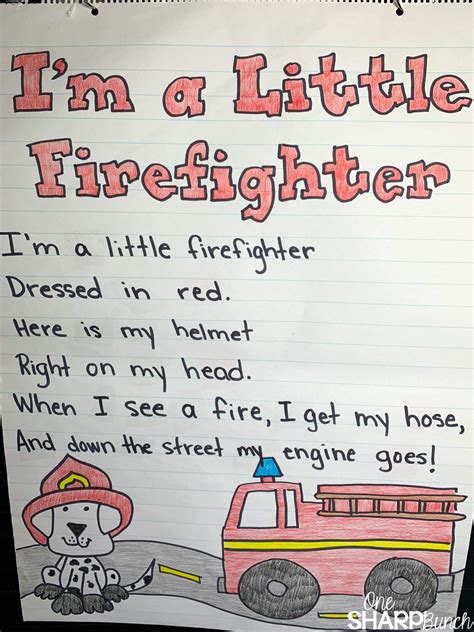 I'm a Little
Firefighter
I'm a little firefighter
Dressed in red.
Here is my helmet
Right on my head.
When I see a fire, I get my hose,
And down the street my engine goes!
One
SHARP Bunch